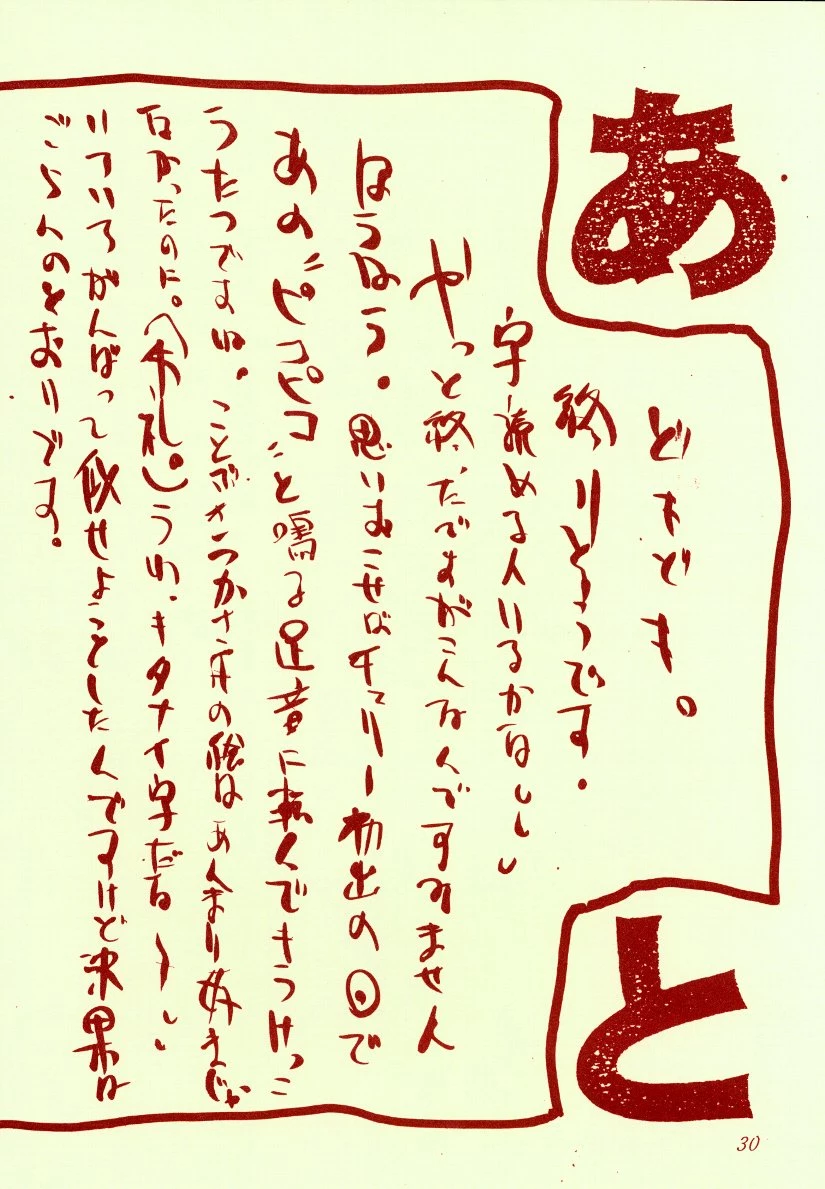 あと
どもども。
終りとうです。
字読める人いるかなしし
やっと終ったですがこんなんですみません
ほうほう。思いおこせばチェリー初出の回で
あの"ピコピコ"と鳴る足音に転んでもうけっこ
うたつですね。ことぶきつかさ
の絵はあんまり好きじゃ
なかったのに。(失礼。)うわ、キタナイ字だな〜しし
いろいろがんばって似せよことしたんですけど決果は
ごらんのとおりです。
30